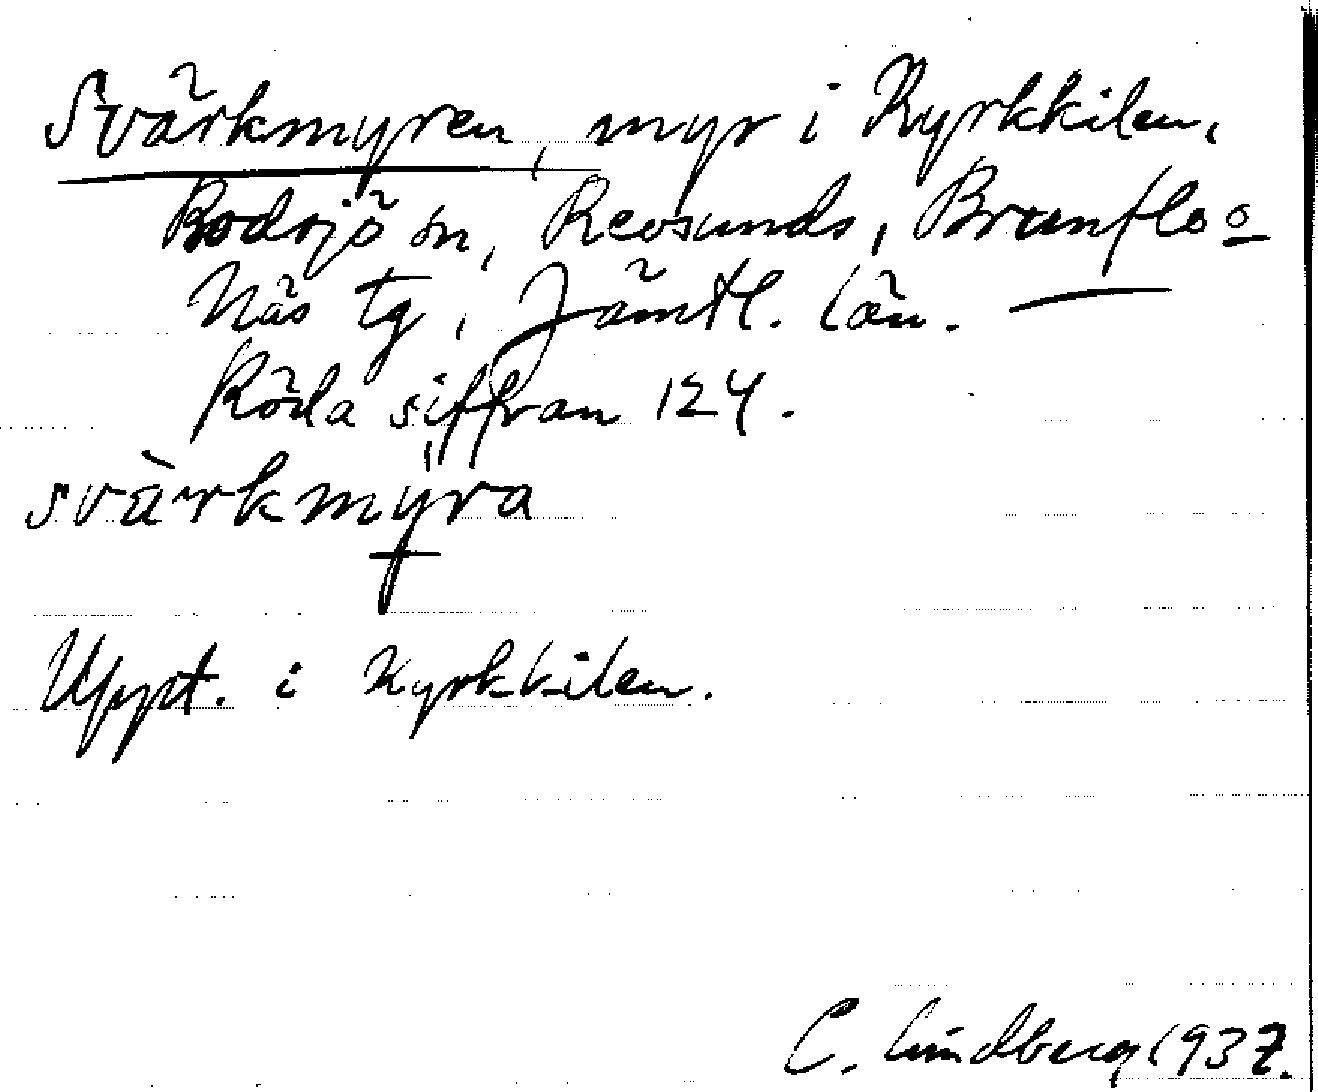 Svärkmyren, myr i Kyrkkilen,
Bodsjö sn, Revsunds, Brunflo o
Näs tg, Jämtl. län.
Röda siffran 124.
svὰrkmÿra
Uppt. i Kyrkkilen.
C. Lindberg 1937.